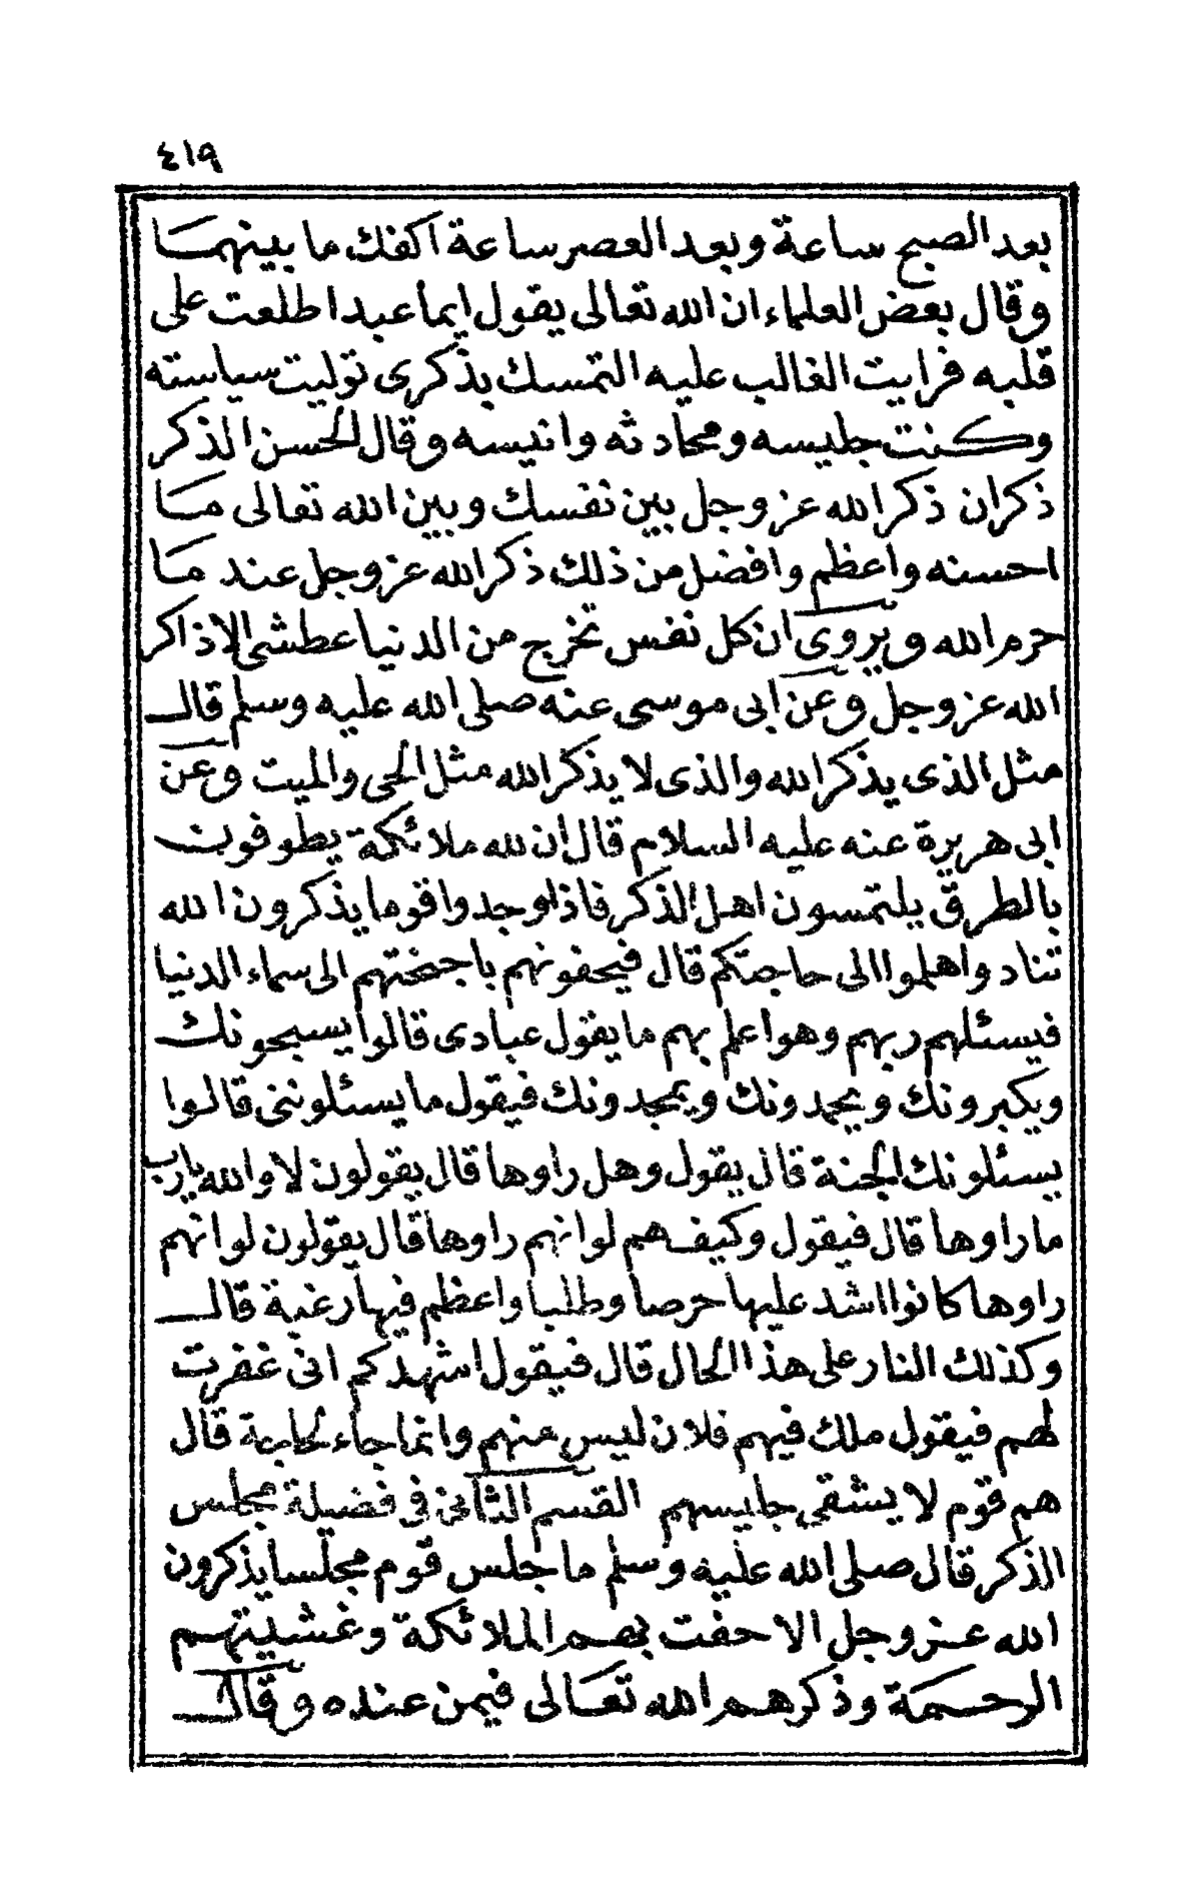 ٤١٩
بعد الصبح ساعة وبعد العصر ساعة اكفك ما بينهما
وقال بعض العلماء ان الله تعالى يقول ايما عبد اطلعت على
قلبه فرايت الغالب عليه التمسك بذكرى توليت سياسته
وكنت جليسه ومحادثه وانيسه وقال الحسن الذكر
ذكران ذكر الله عز وجل بين نفسك وبين الله تعالى ما
احسنه واعظم وافضل من ذلك ذكر الله عز وجل عند ما
حرم الله ويروى ان كل نفس تخرج من الدنيا عطشى الا ذاكر
الله عز وجل وعن ابى موسى عنه صلى الله عليه وسلم قال
مثل الذى يذكر الله والذى لا يذكر الله مثل الحى والميت وعن
ابى هريرة عنه عليه السلام قال ان لله ملائكة يطوفون
بالطرق يلتمسون اهل الذكر فاذا وجدوا قوما يذكرون الله
تنادوا هلموا الى حاجتكم قال فيحفونهم باجنحتهم الى سماء الدنيا
فيسئلهم ربهم وهو اعلم بهم ما يقول عبادى قالوا يسبحونك
ويكبرونك ويحمدونك ويمجدونك فيقول ما يسئلوننى قالوا
يسئلونك الجنة قال يقول وهل راوها قال يقولون لا والله يارب
ما راوها قال فيقول وكيف هم لو انهم راوها قال يقولون لو انهم
راوها كانوا اشد عليها حرصا وطلبا واعظم فيها رغبة قال
وكذلك النار على هذا الحال قال فيقول اشهدكم انى غفرت
لهم فيقول ملك فيهم فلان ليس منهم وانما جاء لحاجة قال
هم قوم لا يشقى جليسهم القسم الثانى فى فضيلة مجلس
الذكر قال صلى الله عليه وسلم ما جلس قوم مجلسا يذكرون
الله عز وجل الا حفت بهم الملائكة وغشيتهم
الرحمة وذكرهم الله تعالى فيمن عنده وقال